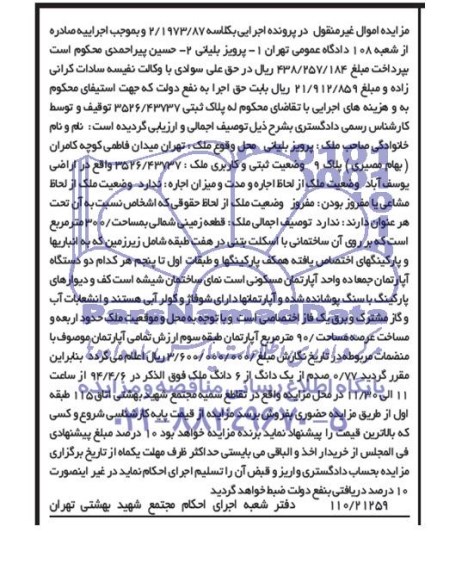 مزایده اموال غیرمنقول در پرونده اجرایی بکلاسه ۲/۱۹۷۳/۸۷ و بموجب اجراییه صادره
از شعبه ۱۰۸ دادگاه عمومی تهران ۱- پرویز بلیانی ۲- حسین پیراحمدی محکوم است
بپرداخت مبلغ ۴۳۸/۲۵۷/۱۸۴ ریال در حق علی سوادی با وکالت نفیسه سادات کرانی
زاده و مبلغ ۲۱/۹۱۲/۸۵۹ ریال بابت حق اجرا به نفع دولت که جهت استیفای محکوم
به و هزینه های اجرایی با تقاضای محکوم له پلاک ثبتی ۳۵۲۶/۴۳۷۳۷ توقیف و توسط
کارشناس رسمی دادگستری بشرح ذیل توصیف اجمالی و ارزیابی گردیده است: نام و نام
خانوادگی صاحب ملک: پرویز بلیانی محل وقوع ملک: تهران میدان فاطمی کوچه کامران
( بهام مصیری ) پلاک ۹ وضعیت ثبتی و کاربری ملک: ۳۵۲۶/۴۳۷۳۷ واقع در اراضی
یوسف آباد وضعیت ملک از لحاظ اجاره و مدت و میزان اجاره: ندارد وضعیت ملک از لحاظ
مشاعی یا مفروز بودن: مفروز وضعیت ملک از لحاظ حقوقی که اشخاص نسبت به آن تحت
هر عنوان دارند: ندارد توصیف اجمالی ملک: قطعه زمینی شمالی بمساحت ۳۰۰ مترمربع
است که بر روی آن ساختمانی با اسکلت بتنی در هفت طبقه شامل زیرزمین که به انباریها
و پارکینگهای اختصاص یافته همکف پارکینگها و طبقات اول تا پنجم هر کدام دو دستگاه
آپارتمان جمعا ده واحد آپارتمان مسکونی است نمای ساختمان شیشه است کف و دیوارهای
پارکینگ با سنگ پوشانده شده و آپارتمانها دارای شوفاژ و کولر آبی هستند و انشعابات آب
و گاز مشترک و برق یک فاز اختصاصی است و با توجه به محل و موقعیت ملک حدود اربعه و
مساحت عرصه مساحت ۹۰ مترمربع آپارتمان طبقه سوم ارزش تمامی آپارتمان موصوف با
منضمات مربوطه در تاریخ نگارش مبلغ ۳/۶۰۰/۰۰۰/۰۰۰ ریال اعلام می گردد بنابراین
مقرر گردید ۰/۷۷ صدم از یک دانگ از ۶ دانگ ملک فوق الذکر در ۹۴/۴/۶ از ساعت
۱۱ الی ۱۱/۳۰ در محل مزایده واقع در تقاطع سمیه مجتمع شهید بهشتی اتاق ۱۱۵ طبقه
اول از طریق مزایده حضوری بفروش برسد مزایده از قیمت پایه کارشناسی شروع و کسی
که بالاترین قیمت را پیشنهاد نماید برنده مزایده خواهد بود ۱۰ درصد مبلغ پیشنهادی
فی المجلس از خریدار اخذ و الباقی می بایستی حداکثر ظرف مهلت یکماه از تاریخ برگزاری
مزایده بحساب دادگستری واریز و قبض آن را تسلیم اجرای احکام نماید در غیر اینصورت
۱۰ درصد دریافتی بنفع دولت ضبط خواهد گردید
۱۱۰/۲۱۲۵۹ دفتر شعبه اجرای احکام مجتمع شهید بهشتی تهران
پایگاه اطلاع رسانی مناقصه و مزایده
۰۲۱-۸۸۳۴۹۶۷۰-۵